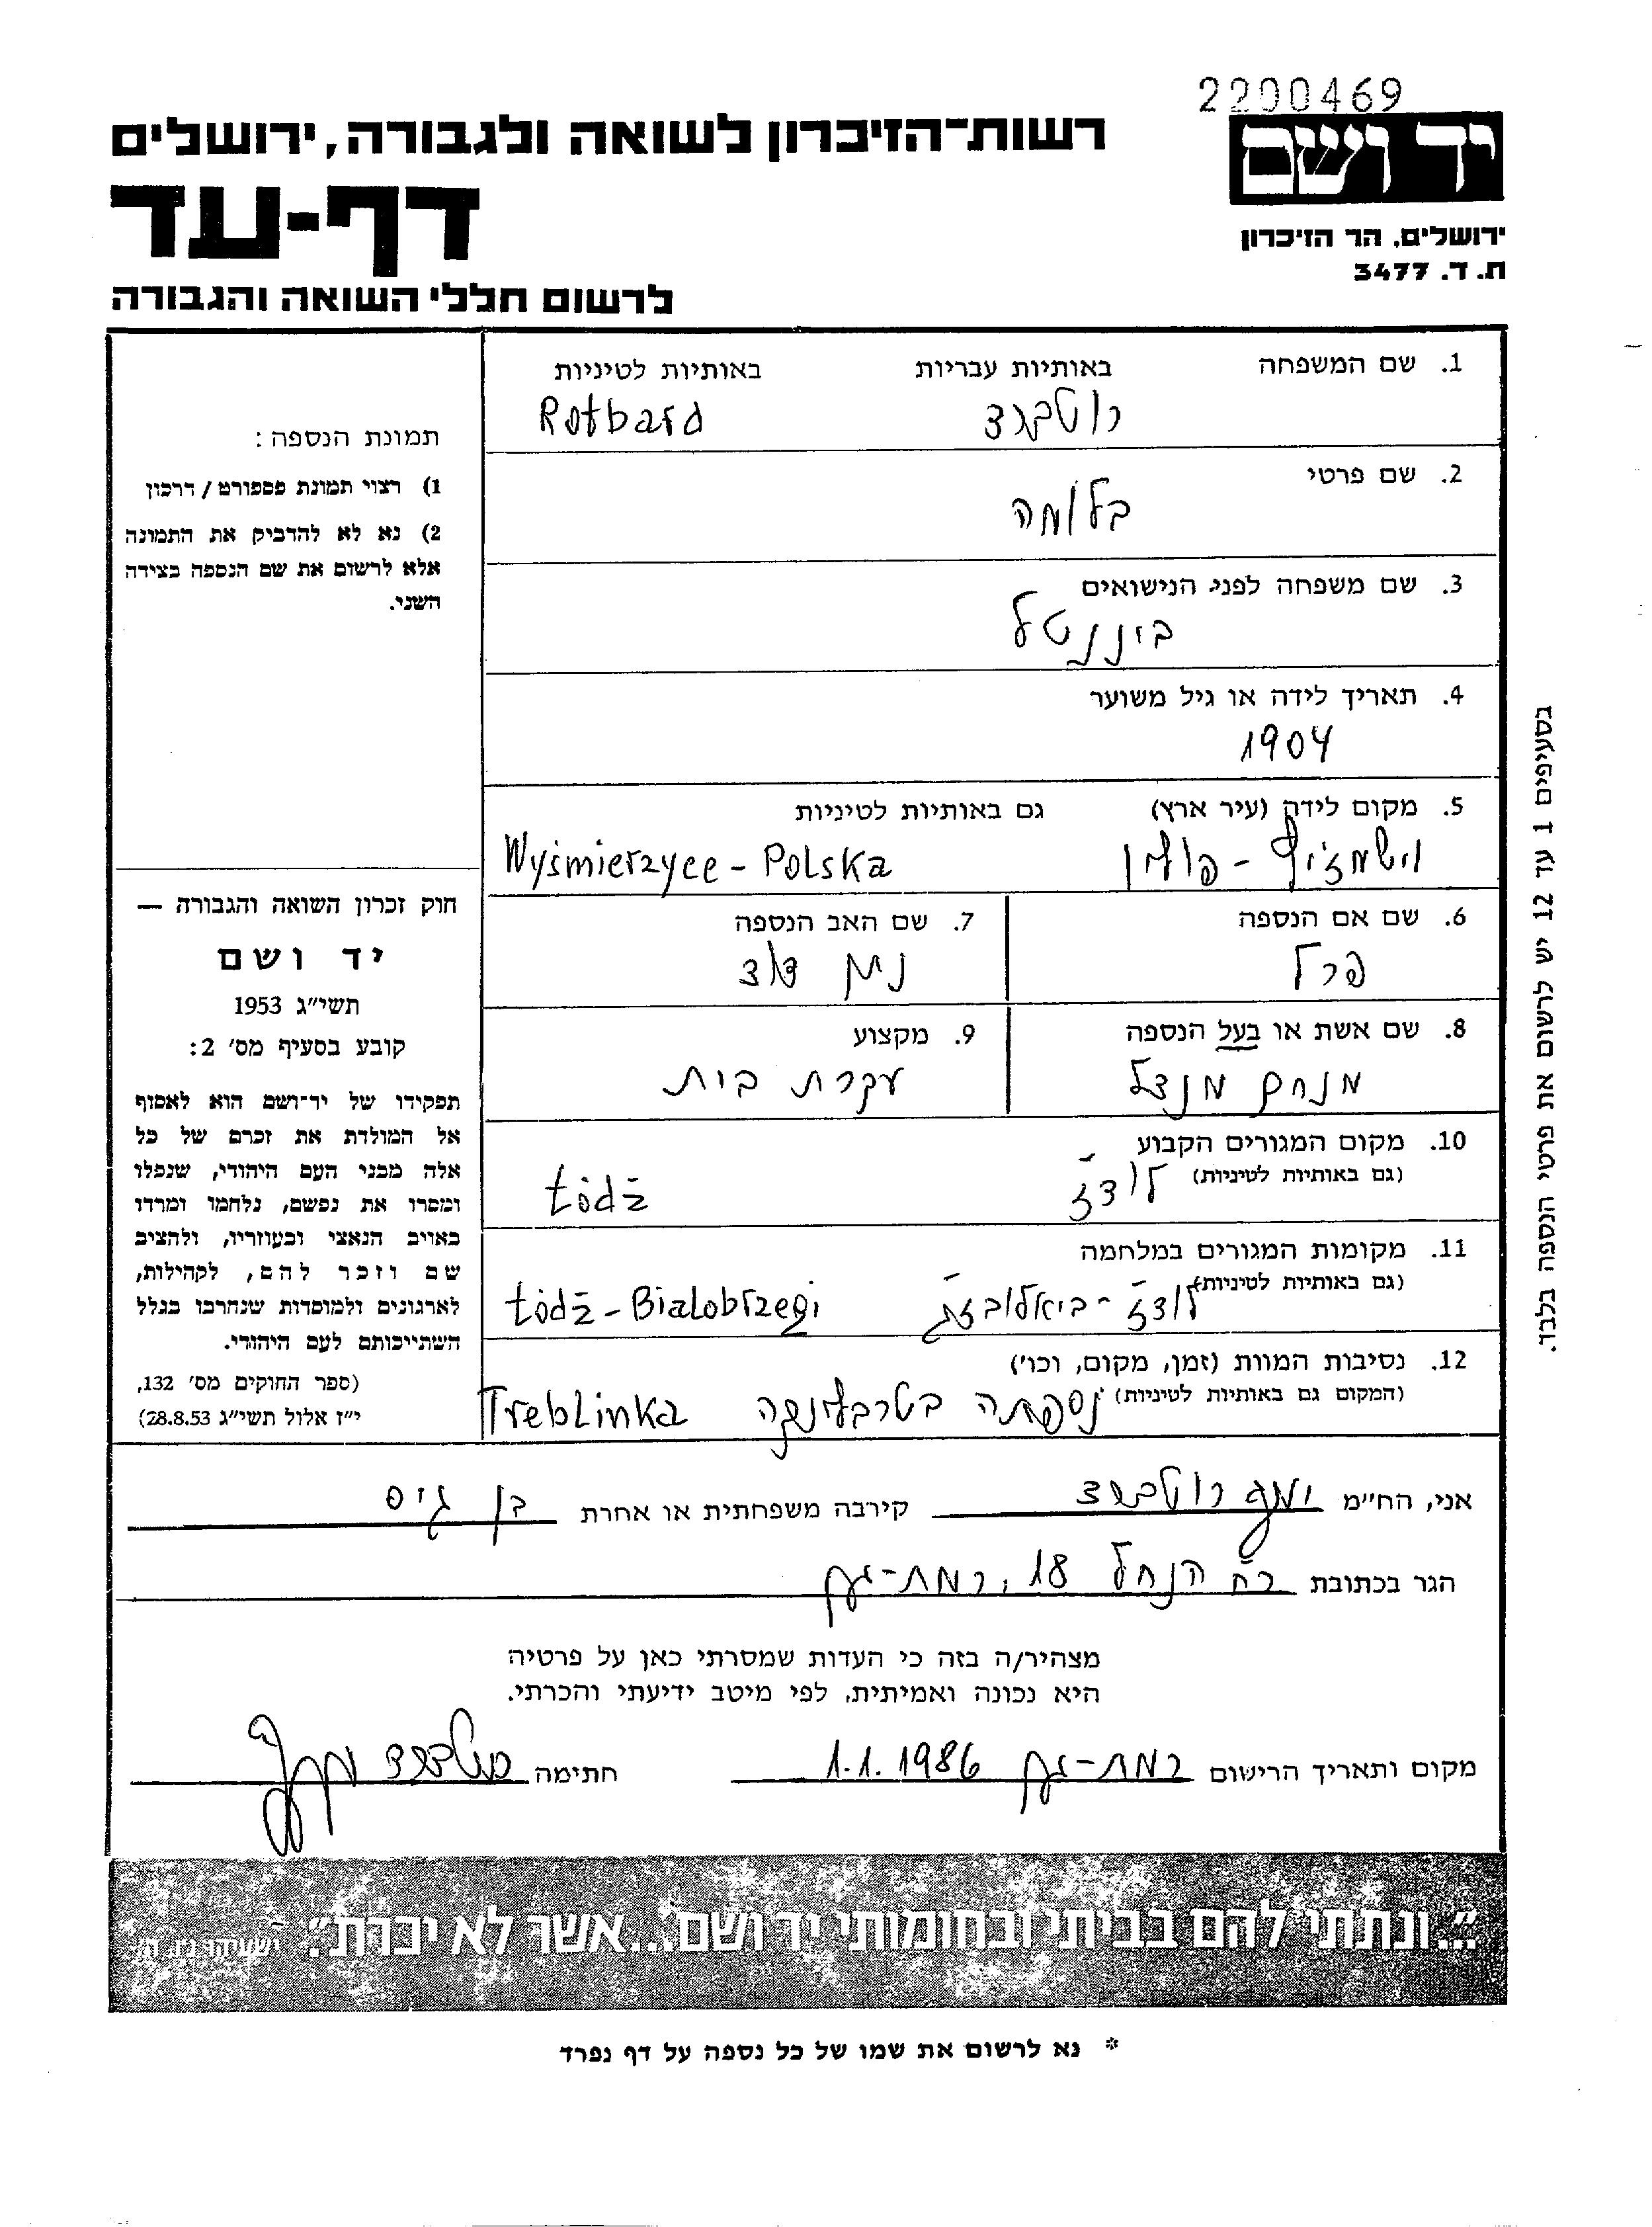 2200469
רשות-הזיכרון לשואה ולגבורה, ירושלים
יד ושם
דף-עד
ירושלים, הר הזיכרון
ת. ד. 3477
לרשום חללי השואה והגבורה
1. שם המשפחה באותיות עבריות באותיות לטיניות
רוטברד Rotbard
2. שם פרטי
בלומה
3. שם משפחה לפני הנישואים
ביננטל
4. תאריך לידה או גיל משוער
1904
5. מקום לידה (עיר ארץ) גם באותיות לטיניות
פולין Wyśmierzyce - Polska
6. שם אם הנספה
פרל
7. שם האב הנספה
נתן דוד
8. שם אשת או בעל הנספה
מנחם מנדל
9. מקצוע
עקרת בית
10. מקום המגורים הקבוע
(גם באותיות לטיניות) לודז Łódź
11. מקומות המגורים במלחמה
(גם באותיות לטיניות) לודז - ביאלוברגי Łódź - Bialobrzegi
12. נסיבות המוות (זמן, מקום, וכו')
(המקום גם באותיות לטיניות) נספתה בטרבלינקה Treblinka
תמונת הנספה:
1) רצוי תמונת פספורט / דרכון
2) נא לא להדביק את התמונה
אלא לרשום את שם הנספה בצידה
השני.
חוק זכרון השואה והגבורה —
יד ושם
תשי"ג 1953
קובע בסעיף מס' 2:
תפקידו של יד-ושם הוא לאסוף
אל המולדת את זכרם של כל
אלה מבני העם היהודי, שנפלו
ומסרו את נפשם, נלחמו ומרדו
באויב הנאצי ובעוזריו, ולהציב
שם וזכר להם, לקהילות,
לארגונים ולמוסדות שנחרבו בגלל
השתייכותם לעם היהודי.
(ספר החוקים מס' 132,
י"ז אלול תשי"ג 28.8.53)
בסעיפים 1 עד 12 יש לרשום את פרטי הנספה בלבד.
אני, הח"מ יוסף רוטברד קירבה משפחתית או אחרת בן גיס
הגר בכתובת רח הנחל 18, רמת-גן
מצהיר/ה בזה כי העדות שמסרתי כאן על פרטיה
היא נכונה ואמיתית, לפי מיטב ידיעתי והכרתי.
מקום ותאריך הרישום רמת-גן 1.1.1986 חתימה רוטברד יוסף
"...ונתתי להם בביתי ובחומותי יד ושם...אשר לא יכרת". ישעיהו נ"ו, ה'
* נא לרשום את שמו של כל נספה על דף נפרד